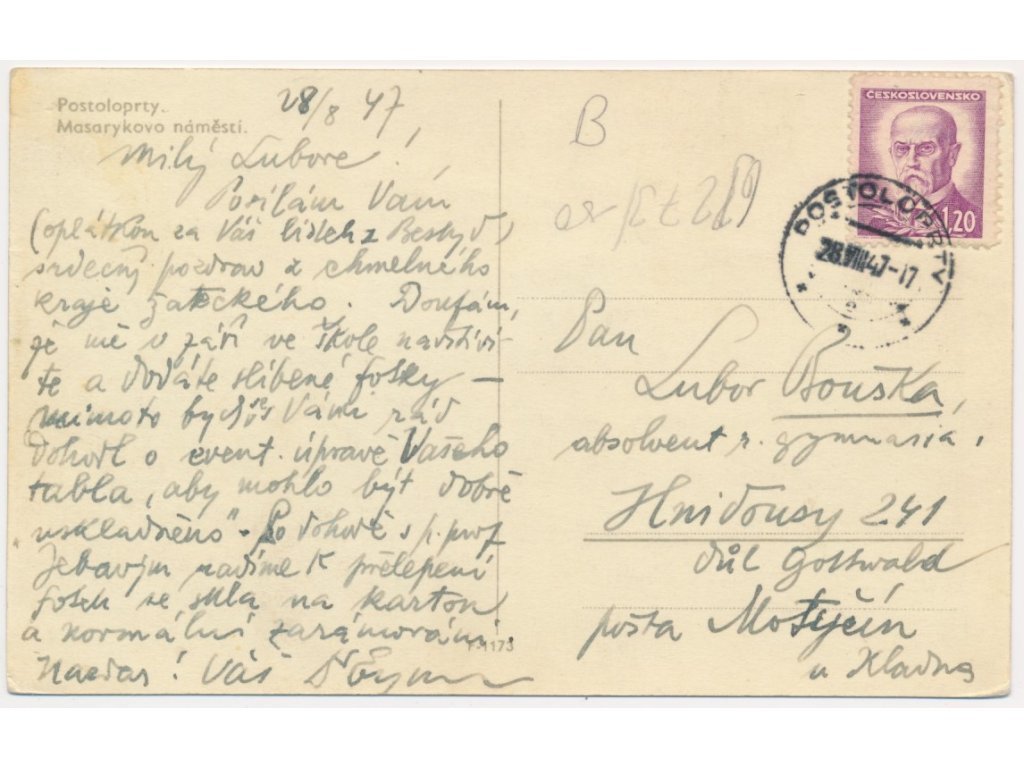 Postoloprty.
Masarykovo náměstí.
28/8 47
Milý Lubore!
Posílám Vám
(oplátkou za Váš lístek z Beskyd)
srdečný pozdrav z chmelného
kraje žateckého. Doufám,
že mě v září ve škole navštíví-
te a dodáte slíbené fotky –
mimoto bych s Vámi rád
dohodl o event. úpravě Vašeho
tabla, aby mohlo být dobře
uskladněno". Po dohodě s p. prof
Jebavým radíme k přelepení
fotek ze skla na karton
a normální zarámování.
Nazdar! Váš
F 31173
B
ČESKOSLOVENSKO
1,20
POSTOLOPRTY
28.VIII.47-17
Pan
Lubor Bouška,
absolvent r. gymnasia,
Hnidousy 241
důl Gottwald
pošta Motyčín
u Kladna